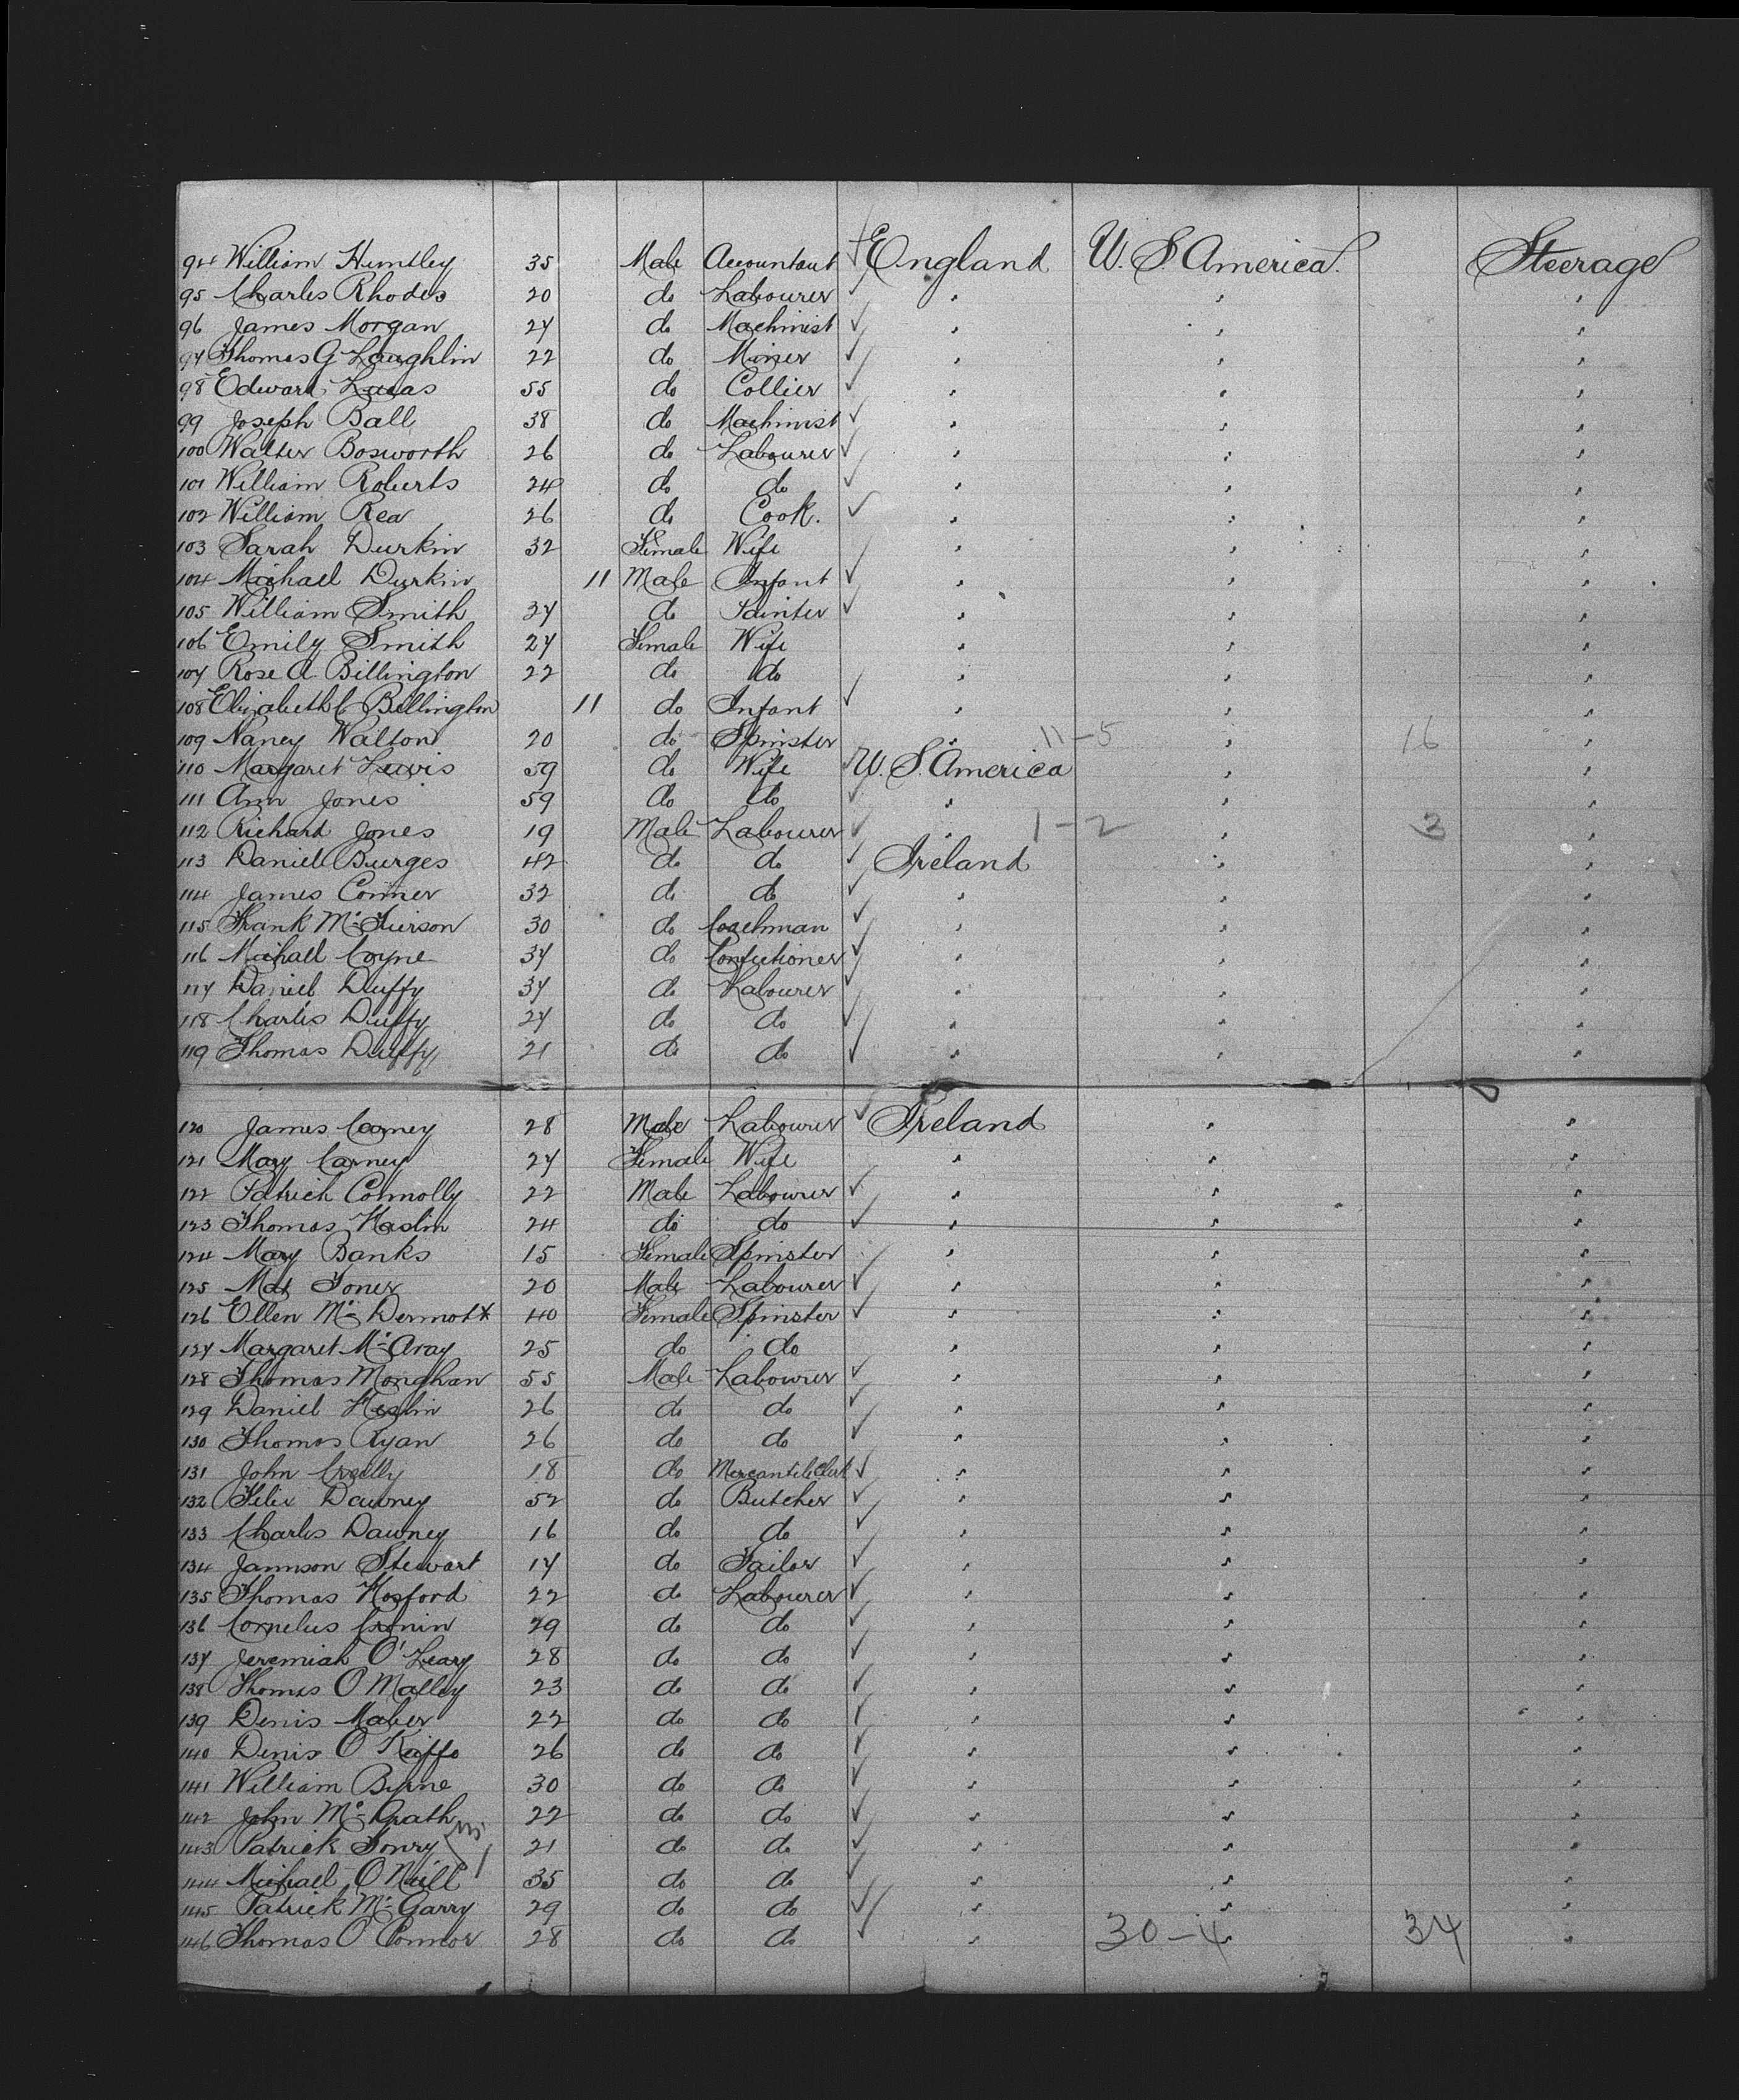 94 William Huntley 35 Male Accountant England U. S. America. Steerage
95 Charles Rhodes 20 do Labourer ✓ " " "
96 James Morgan 27 do Machinist ✓ " " "
97 Thomas G Laughlin 22 do Miner ✓ " " "
98 Edward Lucas 55 do Collier ✓ " " "
99 Joseph Ball 38 do Machinist ✓ " " "
100 Walter Bosworth 26 do Labourer ✓ " " "
101 William Roberts 24 do do ✓ " " "
102 William Rea 26 do Cook. ✓ " " "
103 Sarah Durkin 32 Female Wife " " "
104 Michael Durkin 11 Male Infant ✓ " " "
105 William Smith 37 do Painter ✓ " " "
106 Emily Smith 27 Female Wife " " "
107 Rose A Billington 22 do do " " "
108 Elizabeth C Billington 11 do Infant ✓ " " "
109 Nancy Walton 20 do Spinster " 11-5 " 16 "
110 Margaret Lewis 59 do Wife ✓ U. S. America " "
111 Ann Jones 59 do do ✓ " " "
112 Richard Jones 19 Male Labourer ✓ " 1-2 " 3 "
113 Daniel Burges 42 do do ✓ Ireland " "
114 James Conner 32 do do ✓ " " "
115 Frank Mc 30 do Coachman ✓ " " "
116 Michael Coyne 37 do Confectioner ✓ " " "
117 Daniel Duffy 37 do Labourer ✓ " " "
118 Charles Duffy 27 do do ✓ " " "
119 Thomas Duffy 21 do do ✓ " " "
120 James Carney 28 Male Labourer ✓ Ireland " "
121 Mary Carney 27 Female Wife " " "
122 Patrick Connolly 22 Male Labourer ✓ " " "
123 Thomas Haslin 24 do do ✓ " " "
124 Mary Banks 15 Female Spinster " " "
125 Mat Toner 20 Male Labourer ✓ " " "
126 Ellen Mc Dermott 40 Female Spinster ✓ " " "
127 Margaret Mc Avay 25 do do " " "
128 Thomas Monghan 55 Male Labourer ✓ " " "
129 Daniel Heslin 26 do do ✓ " " "
130 Thomas Ryan 26 do do ✓ " " "
131 John Creilly 18 do Mercantile Clerk ✓ " " "
132 Felix Dawney 52 do Butcher ✓ " " "
133 Charles Dawney 16 do do ✓ " " "
134 Jamison Stewart 17 do Tailor ✓ " " "
135 Thomas Hosford 22 do Labourer ✓ " " "
136 Cornelus Cronin 29 do do ✓ " " "
137 Jeremiah O'Leary 28 do do ✓ " " "
138 Thomas O Malley 23 do do ✓ " " "
139 Denis Maher 22 do do ✓ " " "
140 Denis O Kiffe 26 do do ✓ " " "
141 William Byrne 30 do do ✓ " " "
142 John Mc Grath 22 do do ✓ " " "
143 Patrick Tonry 21 do do ✓ " " "
144 Michael O Neill 35 do do ✓ " " "
145 Patrick Mc Garry 29 do do ✓ " " "
146 Thomas O Connor 28 do do ✓ " 30-4 " 34 "